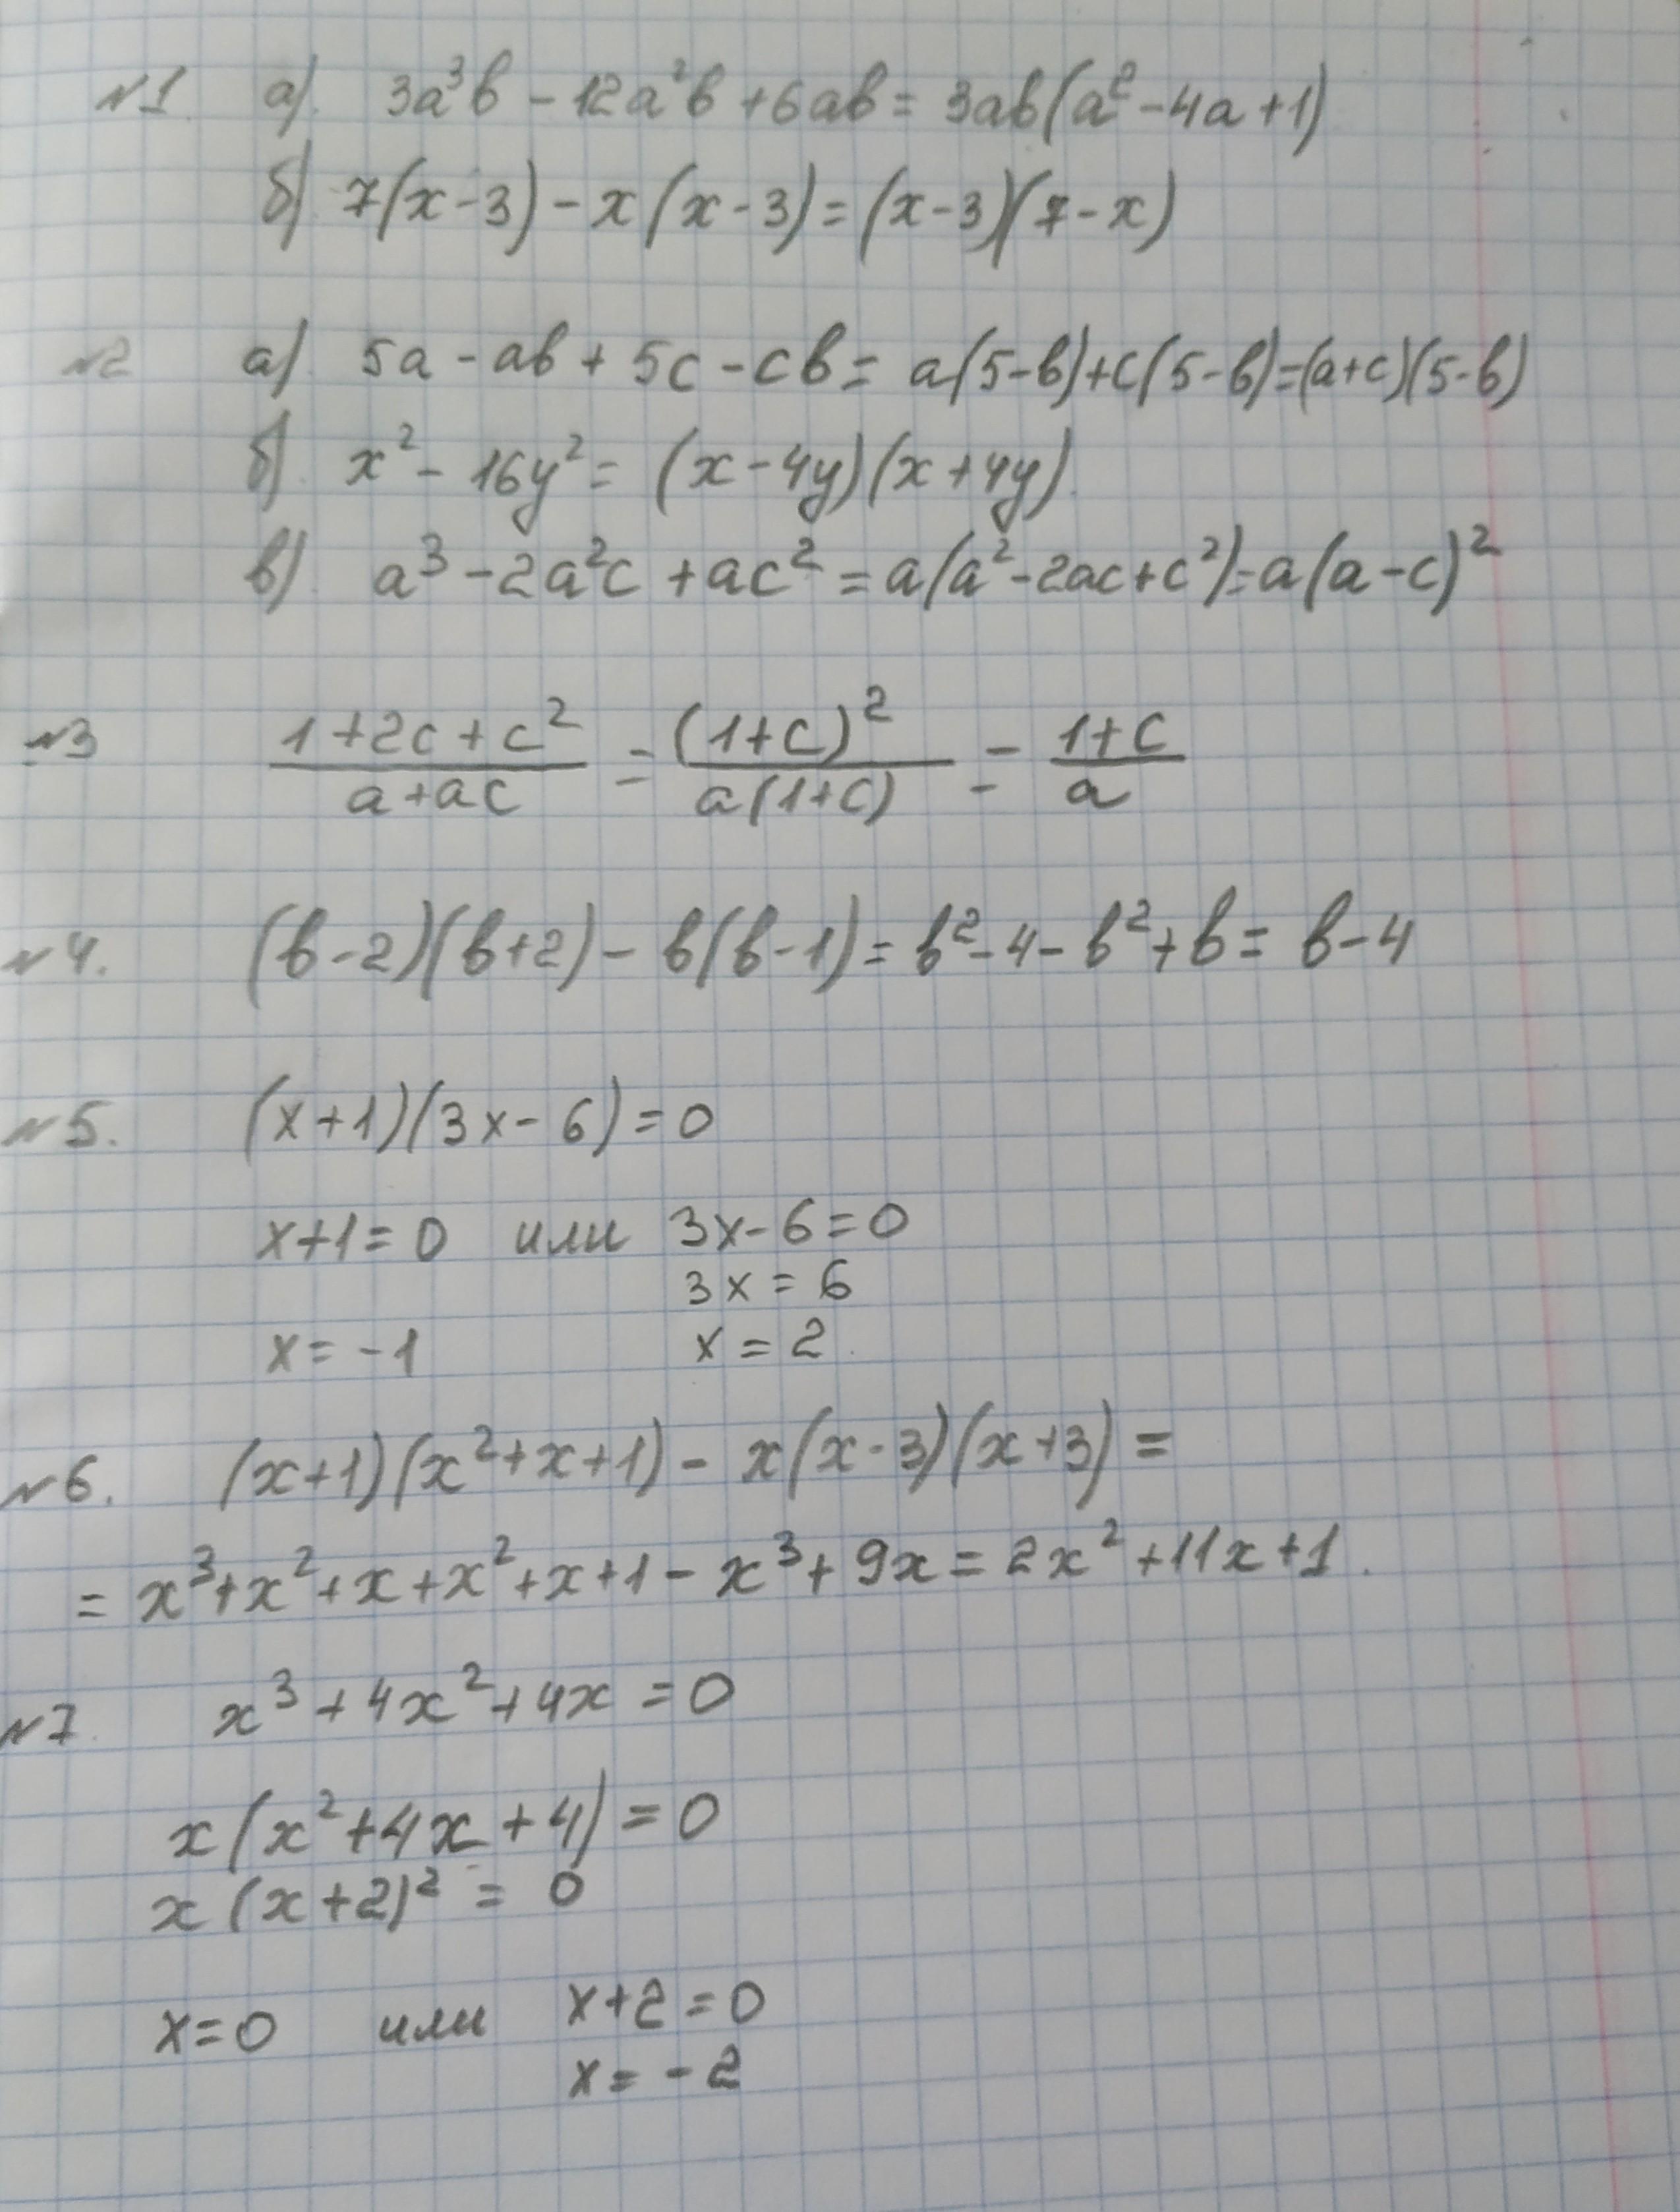 №1. а) 3a³b - 12a²b + 6ab = 3ab(a² - 4a + 1)
б) 7(x - 3) - x(x - 3) = (x - 3)(7 - x)
№2 а) 5a - ab + 5c - cb = a(5 - b) + c(5 - b) = (a + c)(5 - b)
б) x² - 16y² = (x - 4y)(x + 4y)
в) a³ - 2a²c + ac² = a(a² - 2ac + c²) = a(a - c)²
№3 (1 + 2c + c²)/(a + ac) = (1 + c)²/(a(1 + c)) = (1 + c)/a
№4. (b - 2)(b + 2) - b(b - 1) = b² - 4 - b² + b = b - 4
№5. (x + 1)(3x - 6) = 0
x + 1 = 0 или 3x - 6 = 0
3x = 6
x = -1 x = 2.
№6. (x + 1)(x² + x + 1) - x(x - 3)(x + 3) =
= x³ + x² + x + x² + x + 1 - x³ + 9x = 2x² + 11x + 1.
№7. x³ + 4x² + 4x = 0
x(x² + 4x + 4) = 0
x(x + 2)² = 0
x = 0 или x + 2 = 0
x = -2